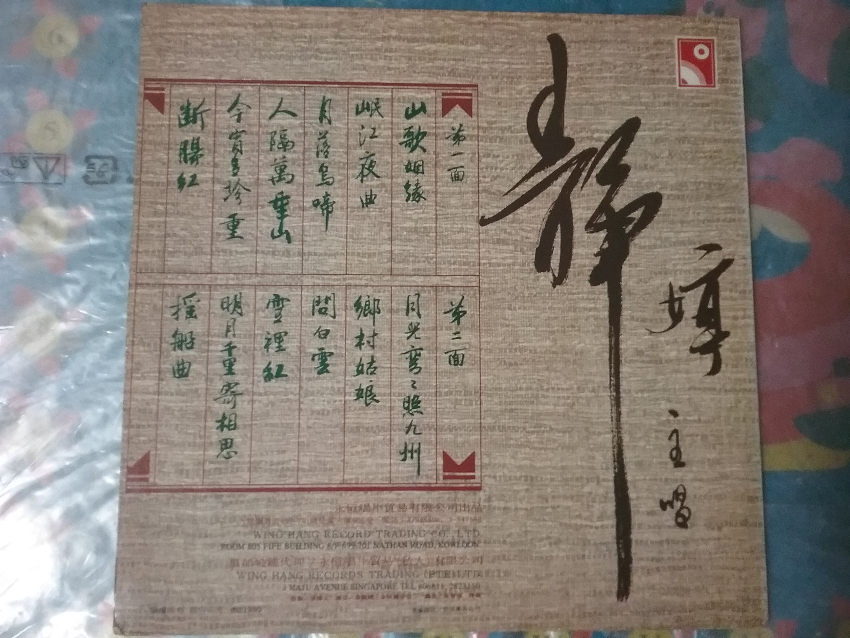 靜
婷
主唱
第一面
山歌姻緣
岷江夜曲
月落烏啼
人隔萬重山
今宵多珍重
斷腸紅
第二面
月光彎彎照九州
鄉村姑娘
問白雲
雪裡紅
明月千里寄相思
搖船曲
WING HANG RECORD TRADING CO. LTD.
ROOM 805 FIFE BUILDING 699-701 NATHAN ROAD, KOWLOON
WING HANG RECORDS TRADING (PTE) LTD